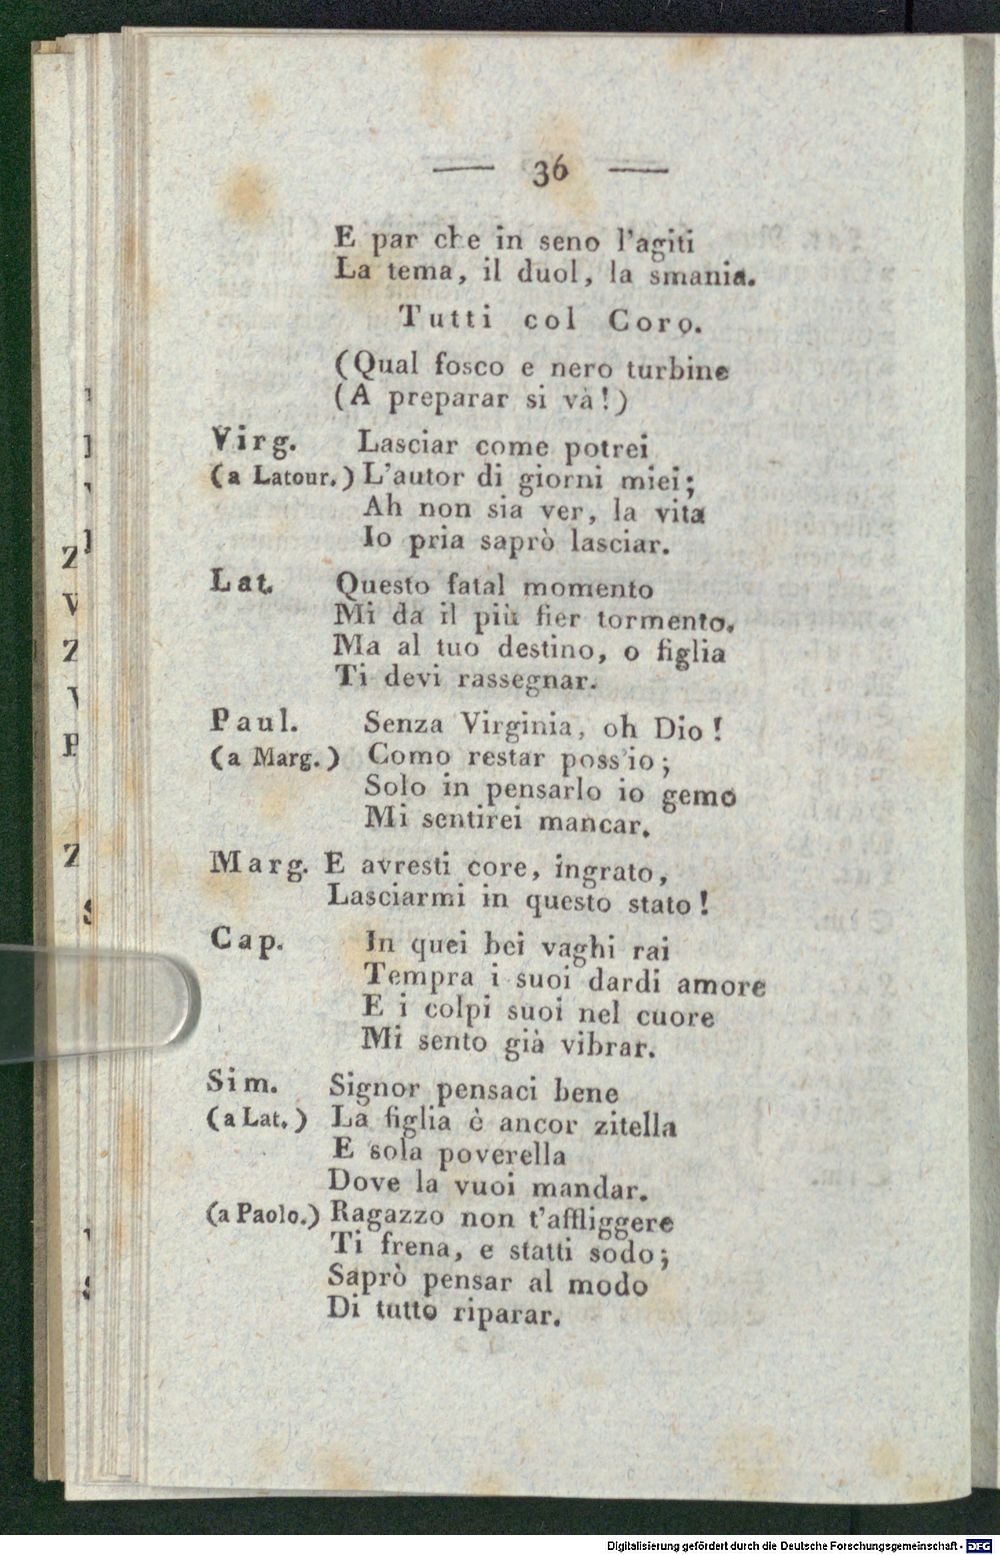 — 36 —
E par che in seno l'agiti
La tema, il duol, la smania.
Tutti col Coro.
(Qual fosco e nero turbine
(A preparar si và!)
Virg. Lasciar come potrei
(a Latour.) L'autor di giorni miei;
Ah non sia ver, la vita
Io pria saprò lasciar.
Lat. Questo fatal momento
Mi da il più fier tormento.
Ma al tuo destino, o figlia
Ti devi rassegnar.
Paul. Senza Virginia, oh Dio!
(a Marg.) Como restar poss'io;
Solo in pensarlo io gemo
Mi sentirei mancar.
Marg. E avresti core, ingrato,
Lasciarmi in questo stato!
Cap. In quei bei vaghi rai
Tempra i suoi dardi amore
E i colpi suoi nel cuore
Mi sento già vibrar.
Sim. Signor pensaci bene
(a Lat.) La figlia è ancor zitella
E sola poverella
Dove la vuoi mandar.
(a Paolo.) Ragazzo non t'affliggere
Ti frena, e statti sodo;
Saprò pensar al modo
Di tutto riparar.
Digitalisierung gefördert durch die Deutsche Forschungsgemeinschaft - DFG